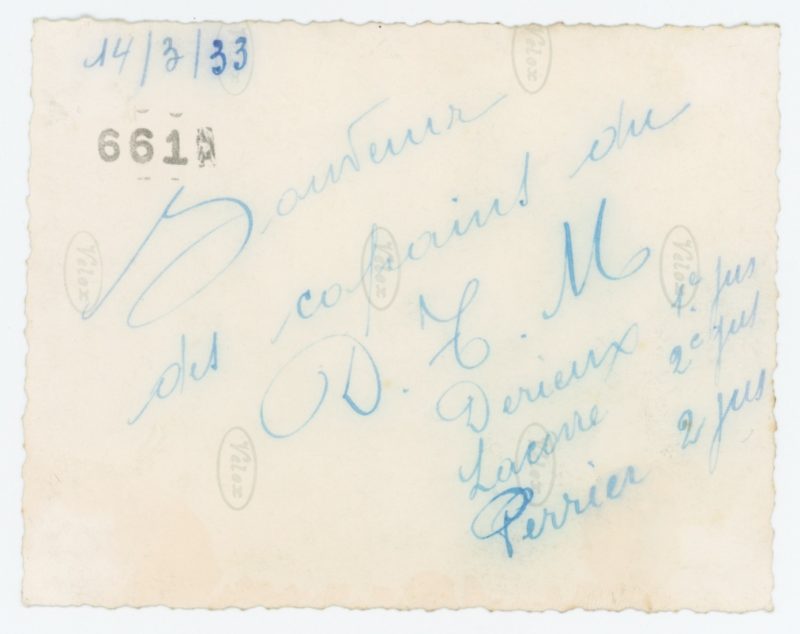 14/3/33
661
Souvenir
des copains du
D. T. M
Derieux 1e jus
Lacorre 2e jus
Perrier 2 jus
Velox
Velox
Velox
Velox
Velox
Velox